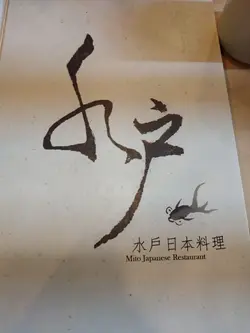 水戸
水戸日本料理
Mito Japanese Restaurant